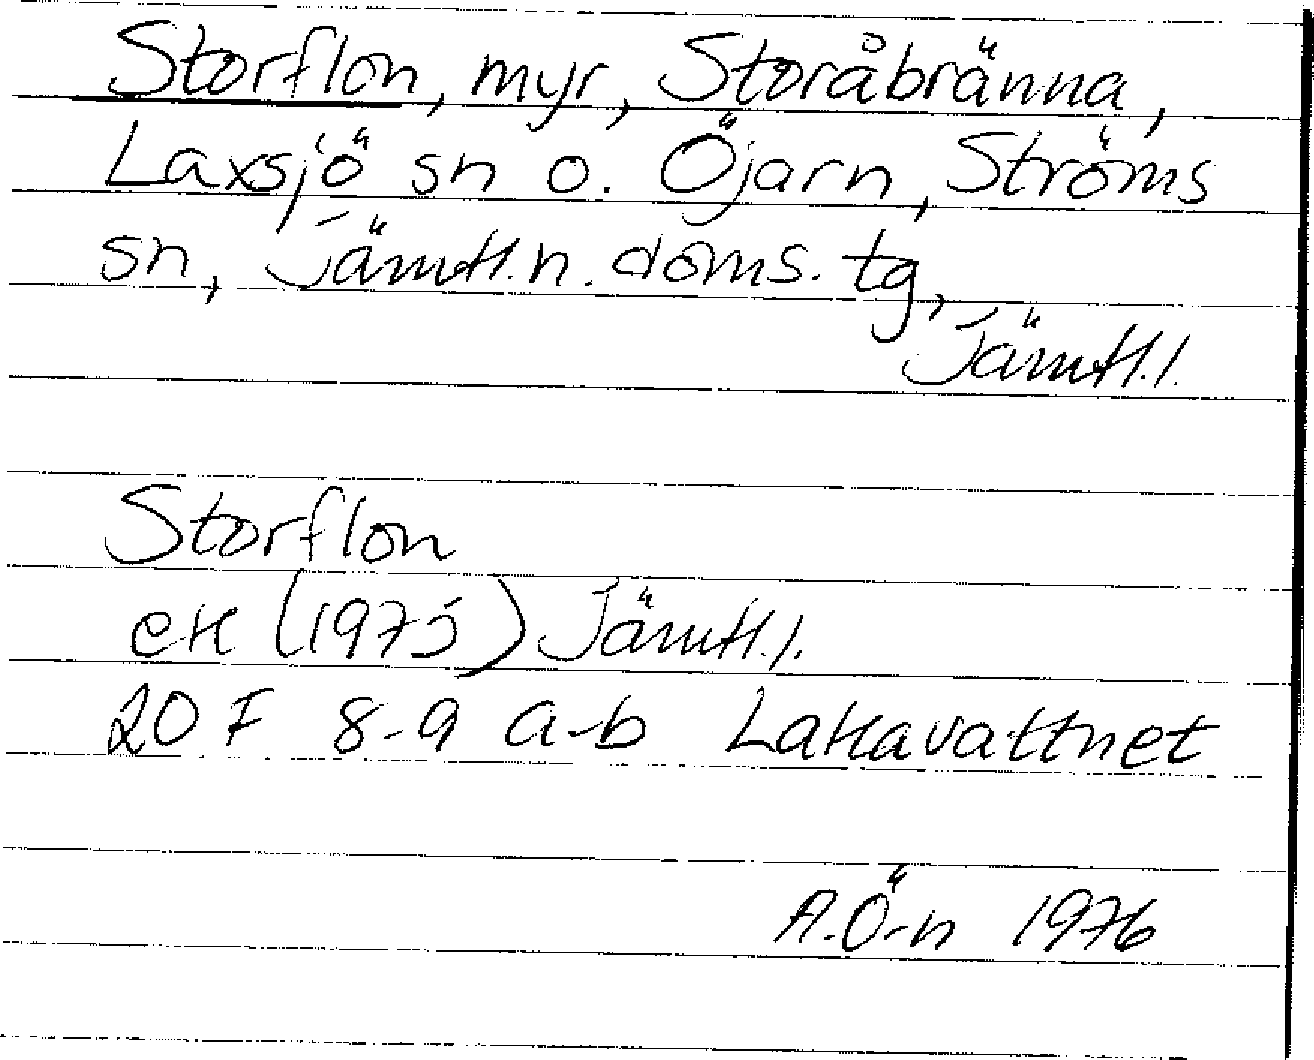 Storflon, myr, Storåbränna,
Laxsjö sn o. Öjarn, Ströms
sn, Jämtl. n. doms. tg,
Jämtl. l.
Storflon
ek (1975) Jämtl. l.
20 F 8-9 a-b Lakavattnet
A.Ö-n 1976